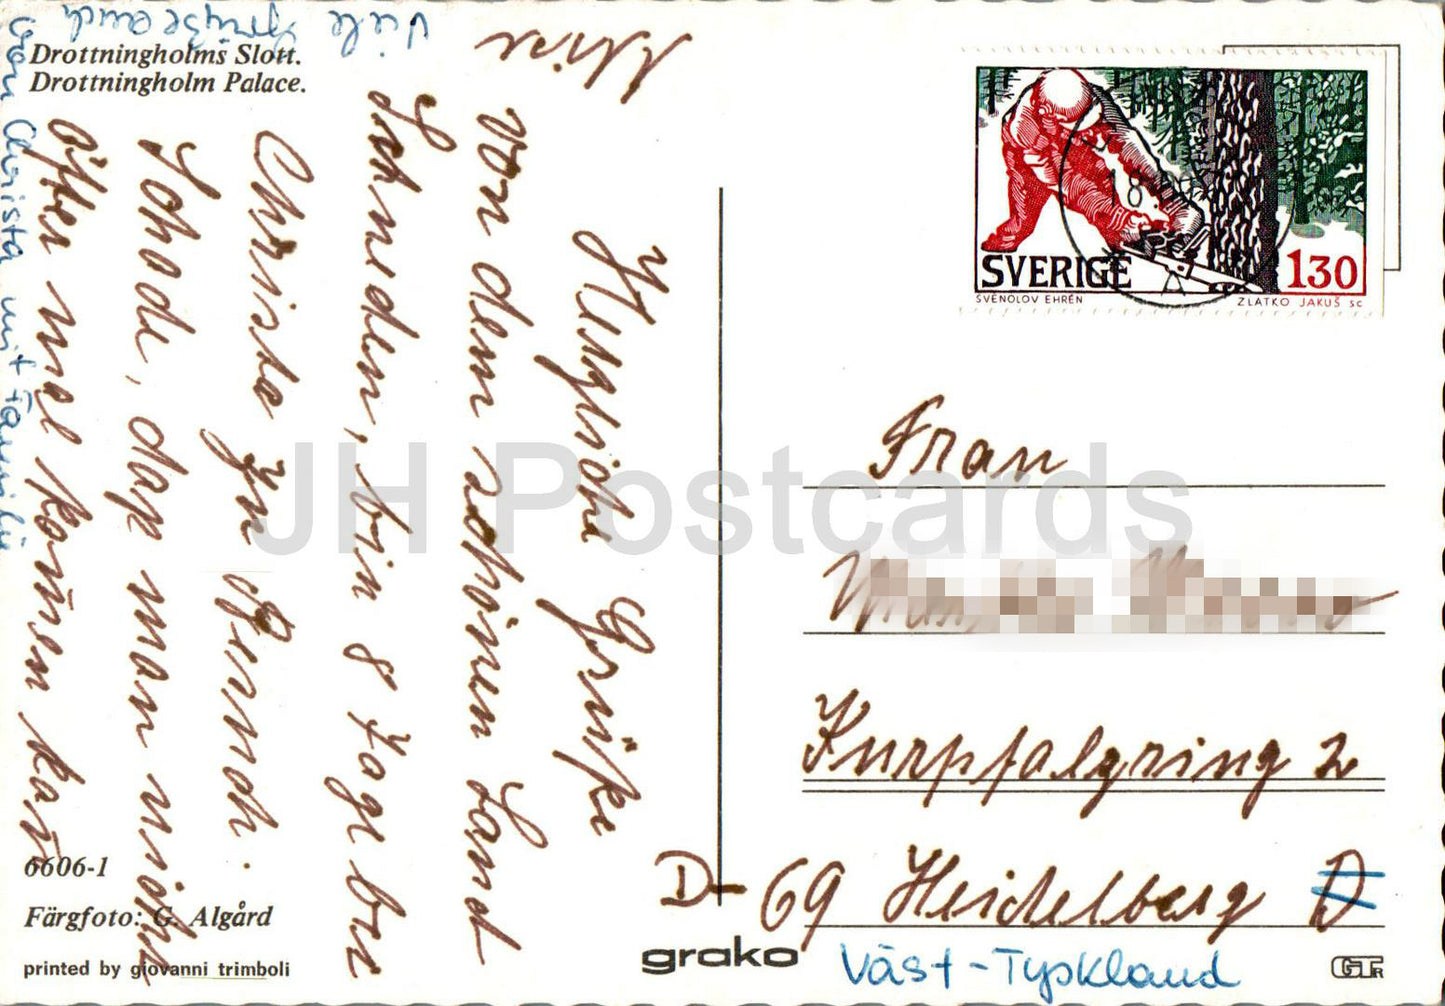 Drottningholms Slott.
Drottningholm Palace.
Herzliche Grüße
von dem schönen Land
Schweden, bin 8 Tage bei
Christa zu Besuch.
Schade, daß man nicht
öfter mal komen kan
Viele
Grüße auch
von Christa mit Familie
SVERIGE
130
SVENOLOV EHRÉN
ZLATKO JAKUŠ SC
18
Frau
Kurpfalzring 2
D-69 Heidelberg D
Väst-Tyskland
6606-1
Färgfoto: G. Algård
printed by giovanni trimboli
grako
JH Postcards